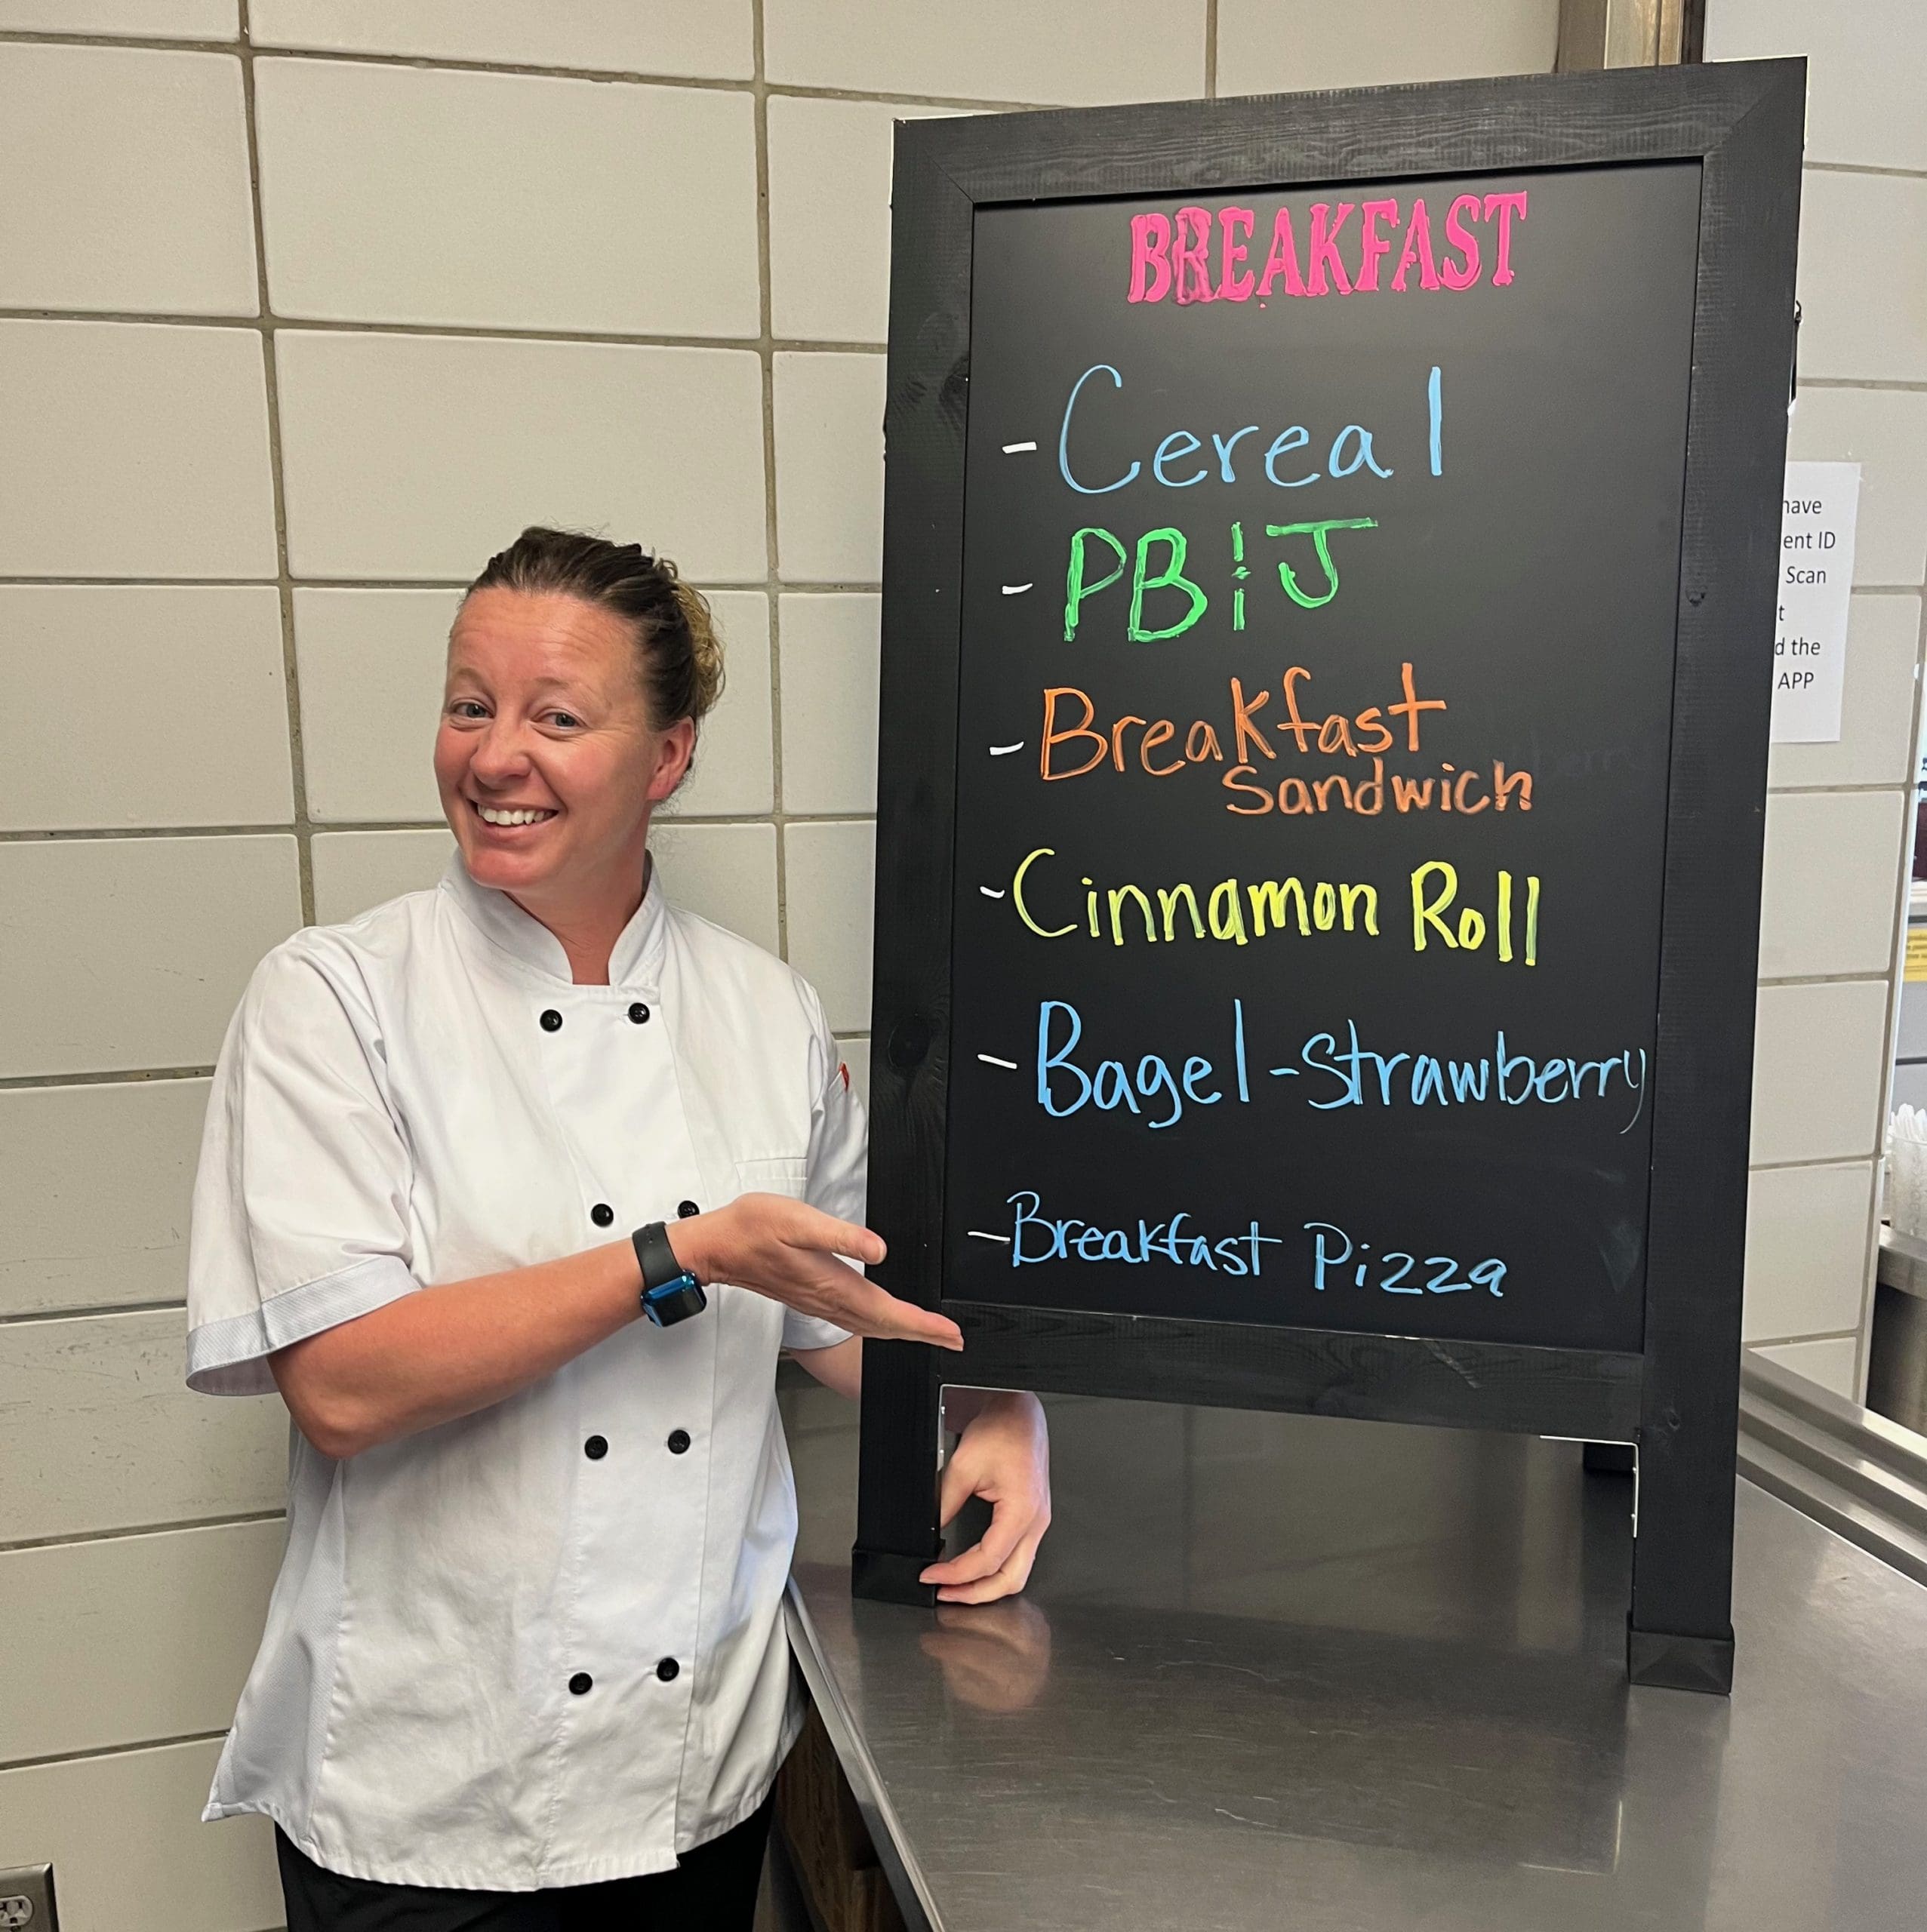 BREAKFAST
- Cereal
- PB!J
- Breakfast
Sandwich
- Cinnamon Roll
- Bagel - Strawberry
- Breakfast Pizza
have
ent ID
Scan
t
d the
APP